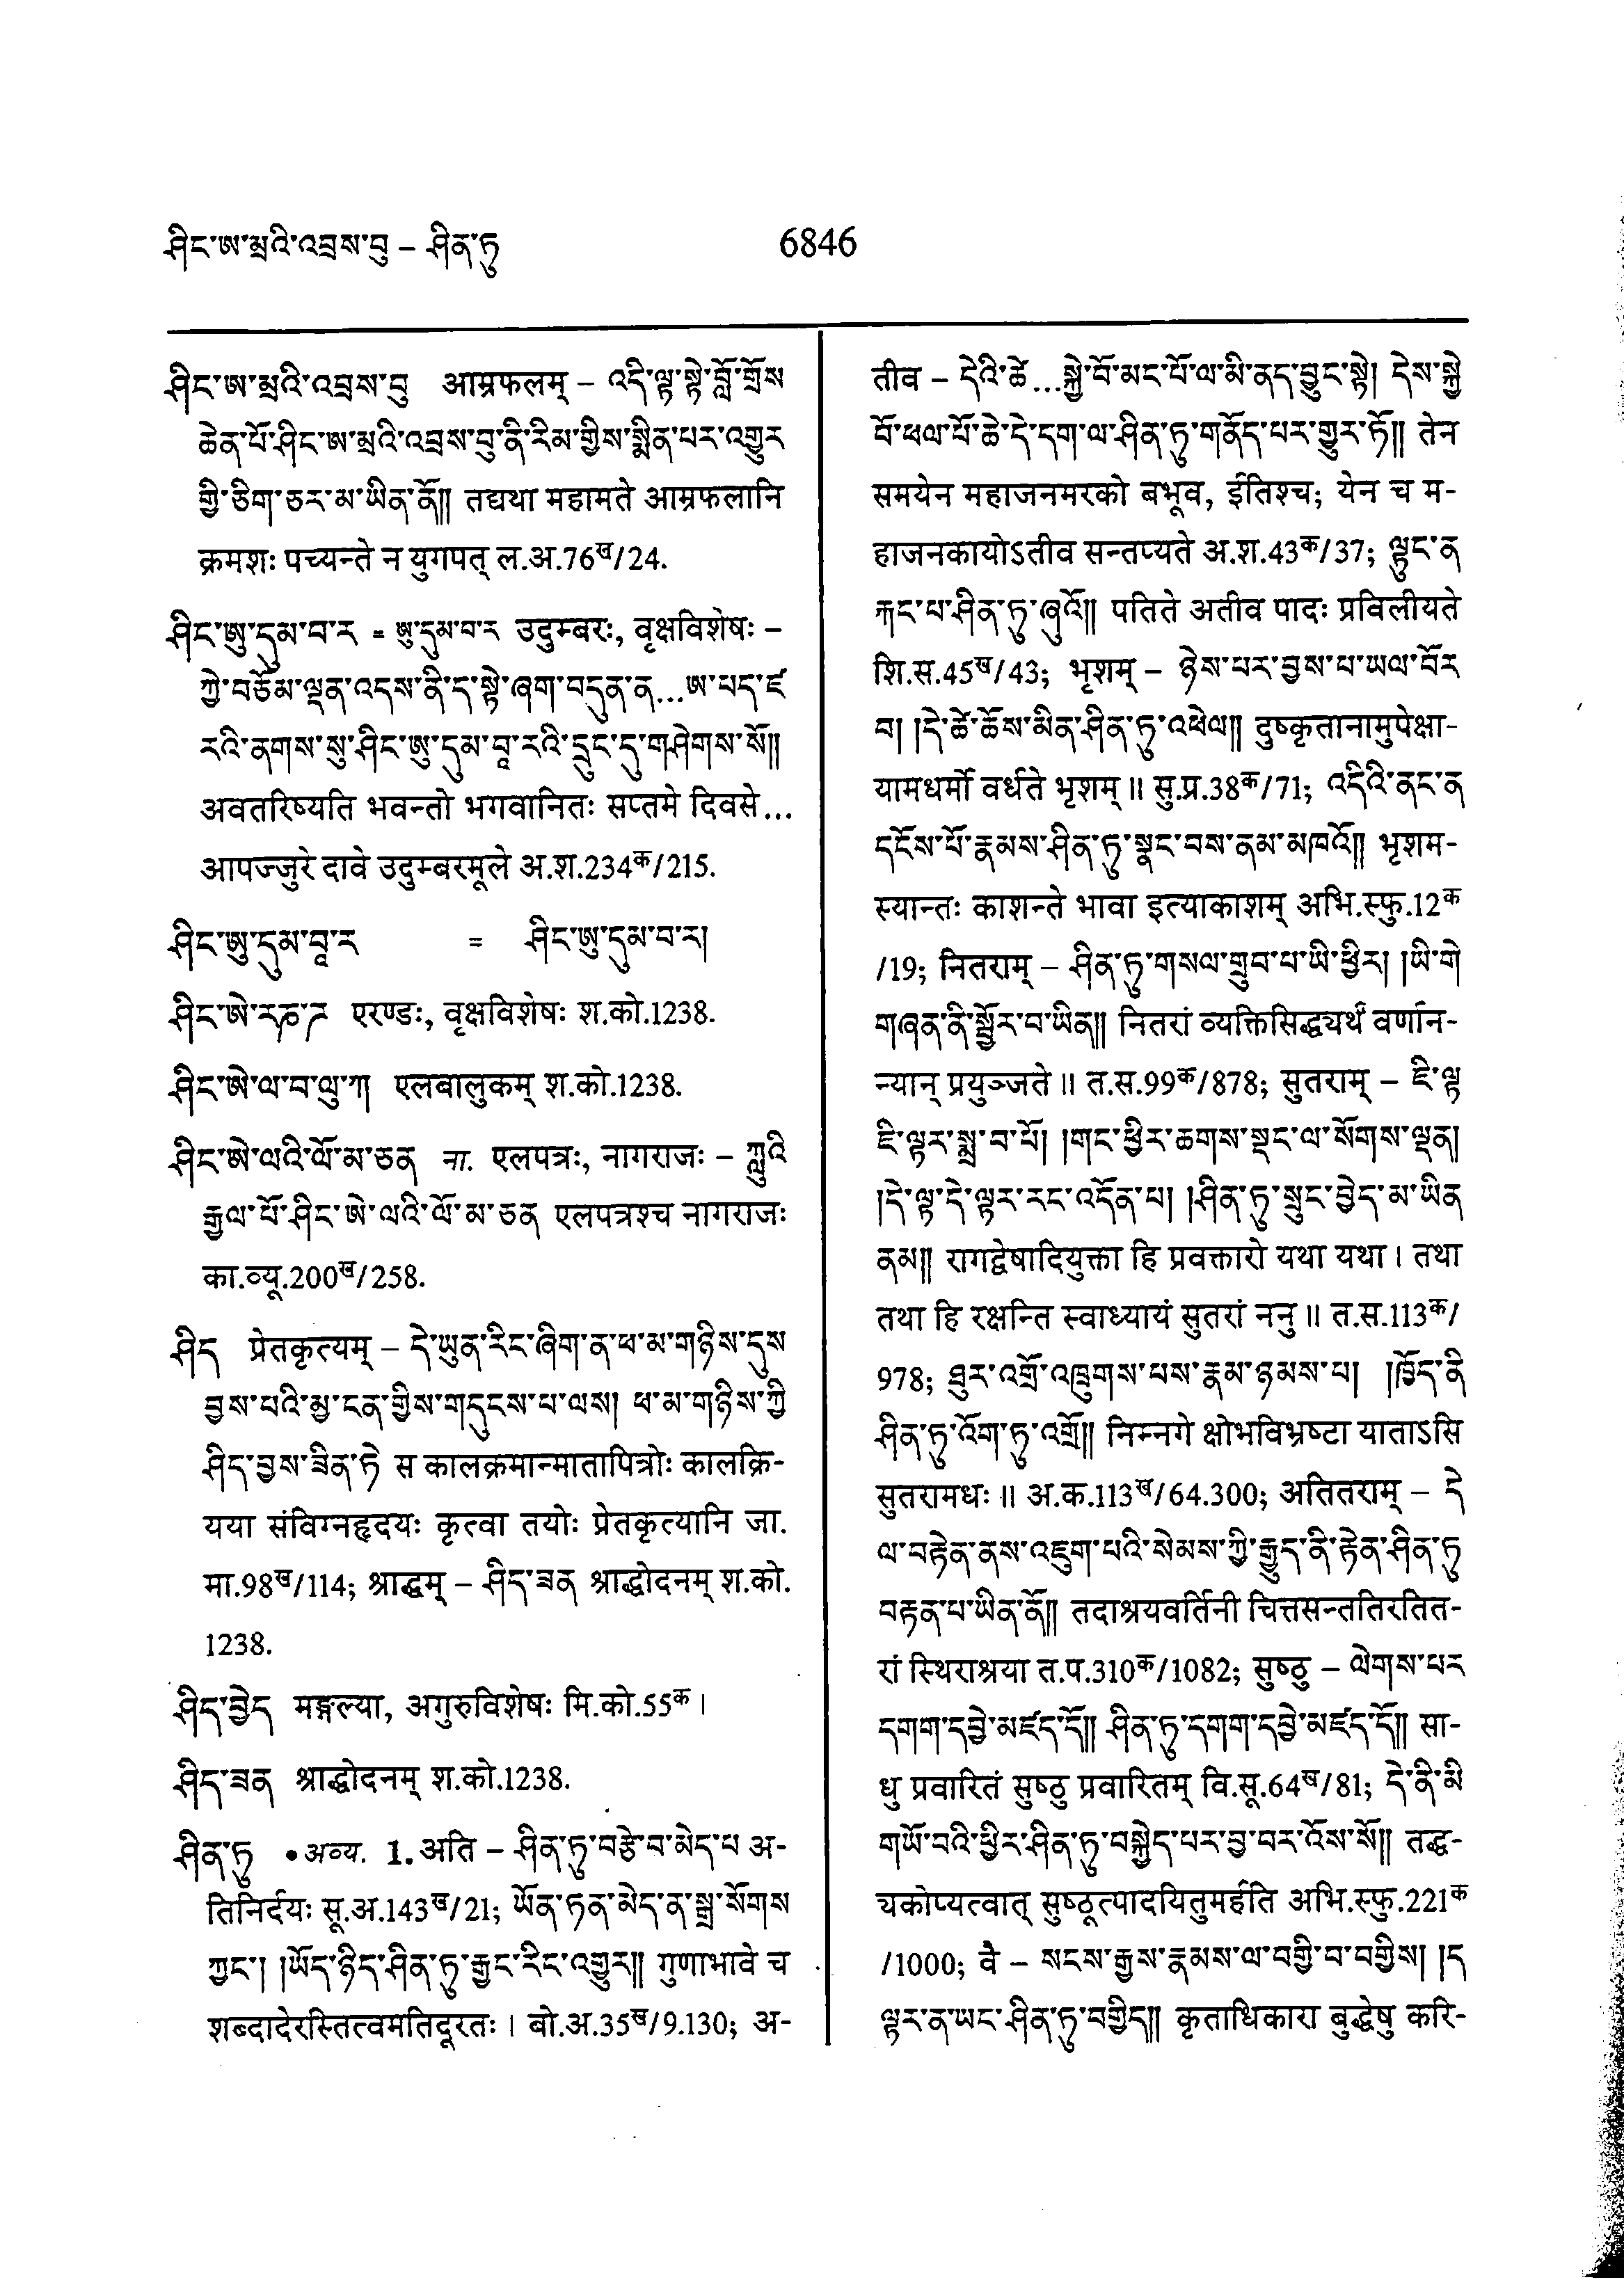 ཤིང་ཨ་མྲའི་འབྲས་བུ – ཤིན་ཏུ
6846
ཤིང་ཨ་མྲའི་འབྲས་བུ आम्रफलम् – འདི་ལྟ་སྟེ་བློ་གྲོས
ཆེན་པོ་ཤིང་ཨ་མྲའི་འབྲས་བུ་ནི་རིམ་གྱིས་སྨིན་པར་འགྱུར
གྱི་ཅིག་ཅར་མ་ཡིན་ནོ།། तद्यथा महामते आम्रफलानि
क्रमशः पच्यन्ते न युगपत् ल.अ.76ख/24.
ཤིང་ཨུ་དུམ་བ་ར = ཨུ་དུམ་བ་ར उदुम्बरः, वृक्षविशेषः –
ཀྱེ་བཅོམ་ལྡན་འདས་ནི་ད་སྟེ་ཞག་བདུན་ན...ཨ་པད་ཛ
རའི་ནགས་སུ་ཤིང་ཨུ་དུམ་བཱ་རའི་དྲུང་དུ་གཤེགས་སོ།།
अवतरिष्यति भवन्तो भगवानितः सप्तमे दिवसे...
आपज्जुरे दावे उदुम्बरमूले अ.श.234क/215.
ཤིང་ཨུ་དུམ་བཱ་ར = ཤིང་ཨུ་དུམ་བ་ར།
ཤིང་ཨེ་རཎ་ཌ एरण्डः, वृक्षविशेषः श.को.1238.
ཤིང་ཨེ་ལ་བ་ལུ་ཀ། एलबालुकम् श.को.1238.
ཤིང་ཨེ་ལའི་ལོ་མ་ཅན ना. एलपत्रः, नागराजः – ཀླུའི
རྒྱལ་པོ་ཤིང་ཨེ་ལའི་ལོ་མ་ཅན एलपत्रश्च नागराजः
का.व्यू.200ख/258.
ཤིད प्रेतकृत्यम् – དེ་ཡུན་རིང་ཞིག་ན་ཕ་མ་གཉིས་དུས
བྱས་པའི་མྱ་ངན་གྱིས་གདུངས་པ་ལས། ཕ་མ་གཉིས་ཀྱི
ཤིད་བྱས་ཟིན་ཏེ स कालक्रमान्मातापित्रोः कालक्रि-
यया संविग्नहृदयः कृत्वा तयोः प्रेतकृत्यानि जा.
मा.98ख/114; श्राद्धम् – ཤིད་ཟན श्राद्धोदनम् श.को.
1238.
ཤིད་བྱེད मङ्गल्या, अगुरुविशेषः मि.को.55क।
ཤིད་ཟན श्राद्धोदनम् श.को.1238.
ཤིན་ཏུ • अव्य. 1. अति – ཤིན་ཏུ་བརྩེ་བ་མེད་པ अ-
तिनिर्दयः सू.अ.143ख/21; ཡོན་ཏན་མེད་ན་སྒྲ་སོགས
ཀྱང་། །ཡོད་ཉིད་ཤིན་ཏུ་རྒྱང་རིང་འགྱུར།། गुणाभावे च
शब्दादेरस्तित्वमतिदूरतः। बो.अ.35ख/9.130; अ-
तीव – དེའི་ཚེ...སྐྱེ་བོ་མང་པོ་ལ་མི་ནད་བྱུང་སྟེ། དེས་སྐྱེ
བོ་ཕལ་པོ་ཆེ་དེ་དག་ལ་ཤིན་ཏུ་གནོད་པར་གྱུར་ཏོ།། तेन
समयेन महाजनमरको बभूव, ईतिश्च; येन च म-
हाजनकायोऽतीव सन्तप्यते अ.श.43क/37; ལྟུང་ན
རྐང་པ་ཤིན་ཏུ་ཞུའོ།། पतिते अतीव पादः प्रविलीयते
शि.स.45ख/43; भृशम् – ཉེས་པར་བྱས་པ་ཡལ་བོར
བ། །དེ་ཚེ་ཆོས་མིན་ཤིན་ཏུ་འཕེལ།། दुष्कृतानामुपेक्षा-
यामधर्मो वर्धते भृशम्॥ सु.प्र.38क/71; འདིའི་ནང་ན
དངོས་པོ་རྣམས་ཤིན་ཏུ་སྣང་བས་ནམ་མཁའོ།། भृशम-
स्यान्तः काशन्ते भावा इत्याकाशम् अभि.स्फु.12क
/19; नितराम् – ཤིན་ཏུ་གསལ་གྲུབ་པ་ཡི་ཕྱིར། །ཡི་གེ
གཞན་ནི་སྦྱོར་བ་ཡིན།། नितरां व्यक्तिसिद्ध्यर्थं वर्णान-
न्यान् प्रयुञ्जते॥ त.स.99क/878; सुतराम् – ཇི་ལྟ
ཇི་ལྟར་སྨྲ་བ་པོ། །གང་ཕྱིར་ཆགས་སྡང་ལ་སོགས་ལྡན།
།དེ་ལྟ་དེ་ལྟར་རང་འདོན་པ། །ཤིན་ཏུ་སྲུང་བྱེད་མ་ཡིན
ནམ།། रागद्वेषादियुक्ता हि प्रवक्तारो यथा यथा। तथा
तथा हि रक्षन्ति स्वाध्यायं सुतरां ननु॥ त.स.113क/
978; ཐུར་འགྲོ་འཁྲུགས་པས་རྣམ་ཉམས་པ། །ཁྱོད་ནི
ཤིན་ཏུ་འོག་ཏུ་འགྲོ།། निम्नगे क्षोभविभ्रष्टा याताऽसि
सुतरामधः॥ अ.क.113ख/64.300; अतितराम् – དེ
ལ་བརྟེན་ནས་འཇུག་པའི་སེམས་ཀྱི་རྒྱུད་ནི་རྟེན་ཤིན་ཏུ
བརྟན་པ་ཡིན་ནོ།། तदाश्रयवर्तिनी चित्तसन्ततिरतित-
रां स्थिराश्रया त.प.310क/1082; सुष्ठु – ལེགས་པར
དགག་དབྱེ་མཛད་དོ།། ཤིན་ཏུ་དགག་དབྱེ་མཛད་དོ།། सा-
धु प्रवारितं सुष्ठु प्रवारितम् वि.सू.64ख/81; དེ་ནི་མི
གཡོ་བའི་ཕྱིར་ཤིན་ཏུ་བསྐྱེད་པར་བྱ་བར་འོས་སོ།། तद्ध-
यकोप्यत्वात् सुष्ठूत्पादयितुमर्हति अभि.स्फु.221क
/1000; वै – སངས་རྒྱས་རྣམས་ལ་བགྱི་བ་བགྱིས། །ད
ལྟར་ན་ཡང་ཤིན་ཏུ་བགྱིད།། कृताधिकारा बुद्धेषु करि-